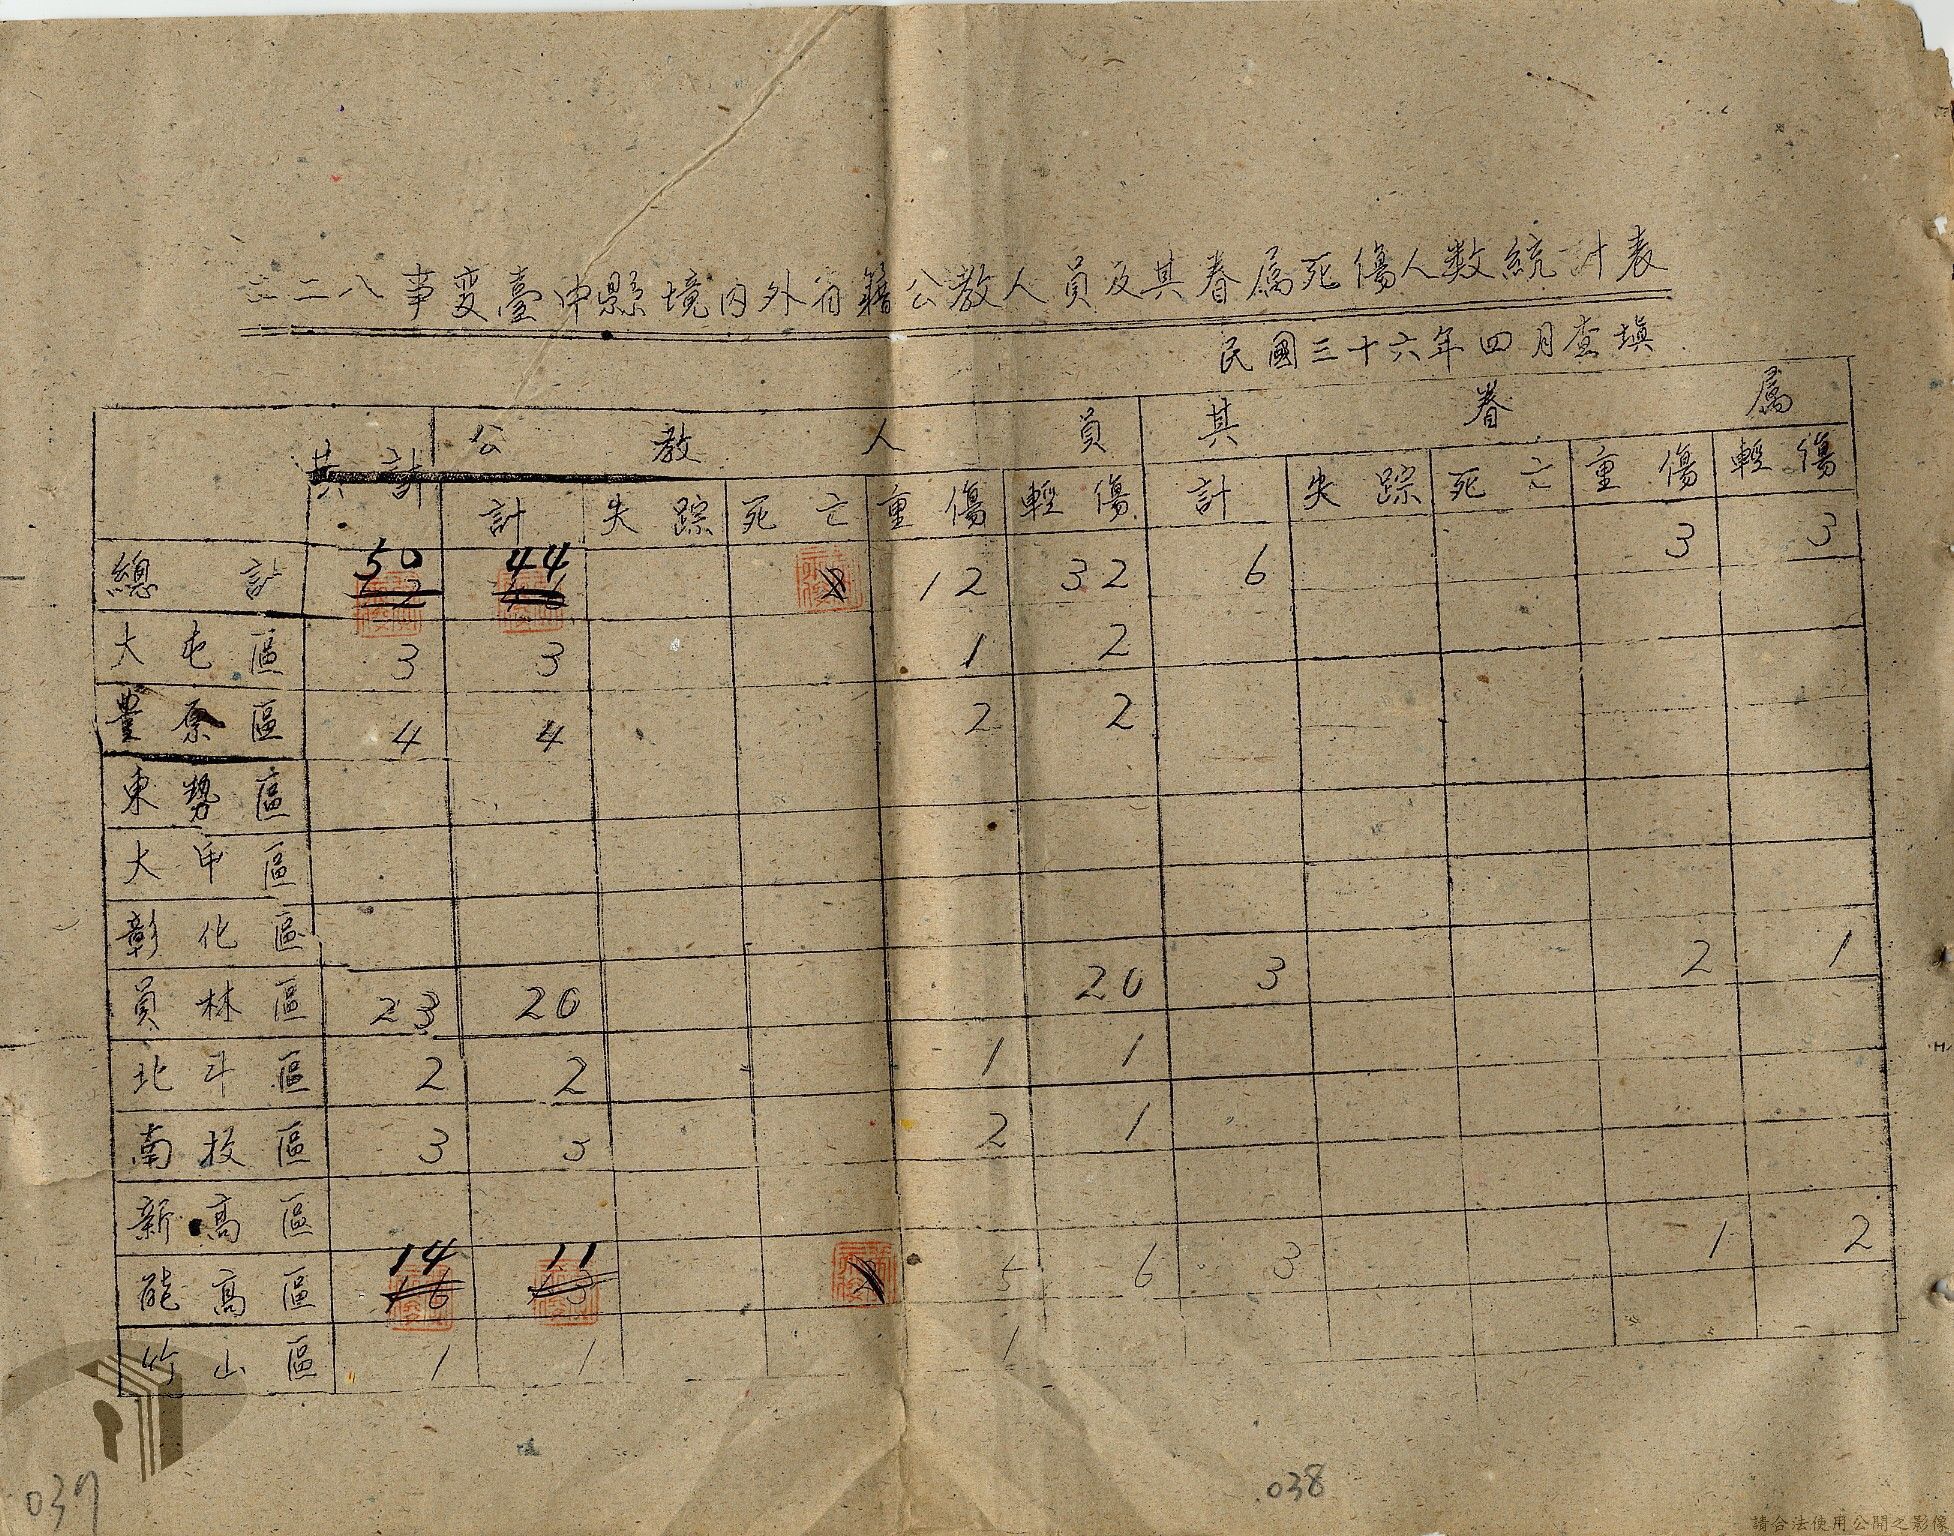 二二八事变臺中縣境内外省籍公教人員及其眷属死傷人数統計表
民國三十六年四月查填
共計 公教人員 其眷属
計 失踪 死亡 重傷 輕傷 計 失踪 死亡 重傷 輕傷
總計 50 52 44 46 2 12 32 6 3 3
大屯區 3 3 1 2
豊原區 4 4 2 2
東勢區
大甲區
彰化區
員林區 23 20 20 3 2 1
北斗區 2 2 1 1
南投區 3 3 2 1
新高區
能高區 14 16 11 13 2 5 6 3 1 2
竹山區 1 1 1
037
038
請合法使用公開之影像